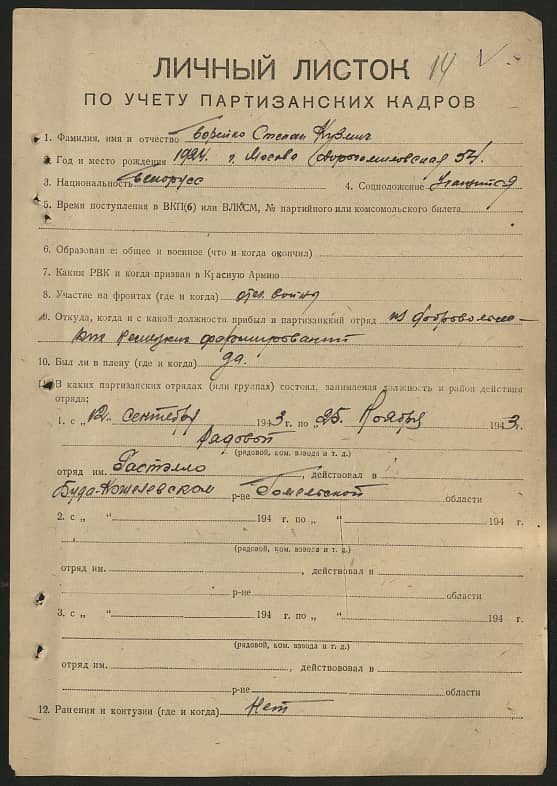 ЛИЧНЫЙ ЛИСТОК 14
ПО УЧЕТУ ПАРТИЗАНСКИХ КАДРОВ
1. Фамилия, имя и отчество Борейко Степан Кузмич
2. Год и место рождения 1924 г. Москва (Дорогомиловская 54).
3. Национальность Белорусс 4. Соцположение Учащийся
5. Время поступления в ВКП(б) или ВЛКСМ, № партийного или комсомольского билета
6. Образование: общее и военное (что и когда окончил)
7. Каким РВК и когда призван в Красную Армию
8. Участие на фронтах (где и когда) отеч. война
9. Откуда, когда и с какой должности прибыл в партизанкий отряд из доброволь-
немецких формирований
10. Был ли в плену (где и когда) да.
11. В каких партизанских отрядах (или группах) состоял, занимаемая должность и район действия
отряда:
1. с „12„ сентября 1943 г. по „25. Ноября 1943 г.
Рядовой
(рядовой, ком. взвода и т. д.)
отряд им. Гастэлло, действовал в
Буда-Кошелевском р-не Гомельской области
2. с „ “ 194 г. по „ “ 194 г.
(рядовой, ком. взвода и т. д.)
отряд им. , действовал в
р-не области
3. с „ “ 194 г. по „ “ 194 г.
(рядовой, ком. взвода и т. д.)
отряд им. , действововал в
р-не области
12. Ранения и контузии (где и когда) Нет